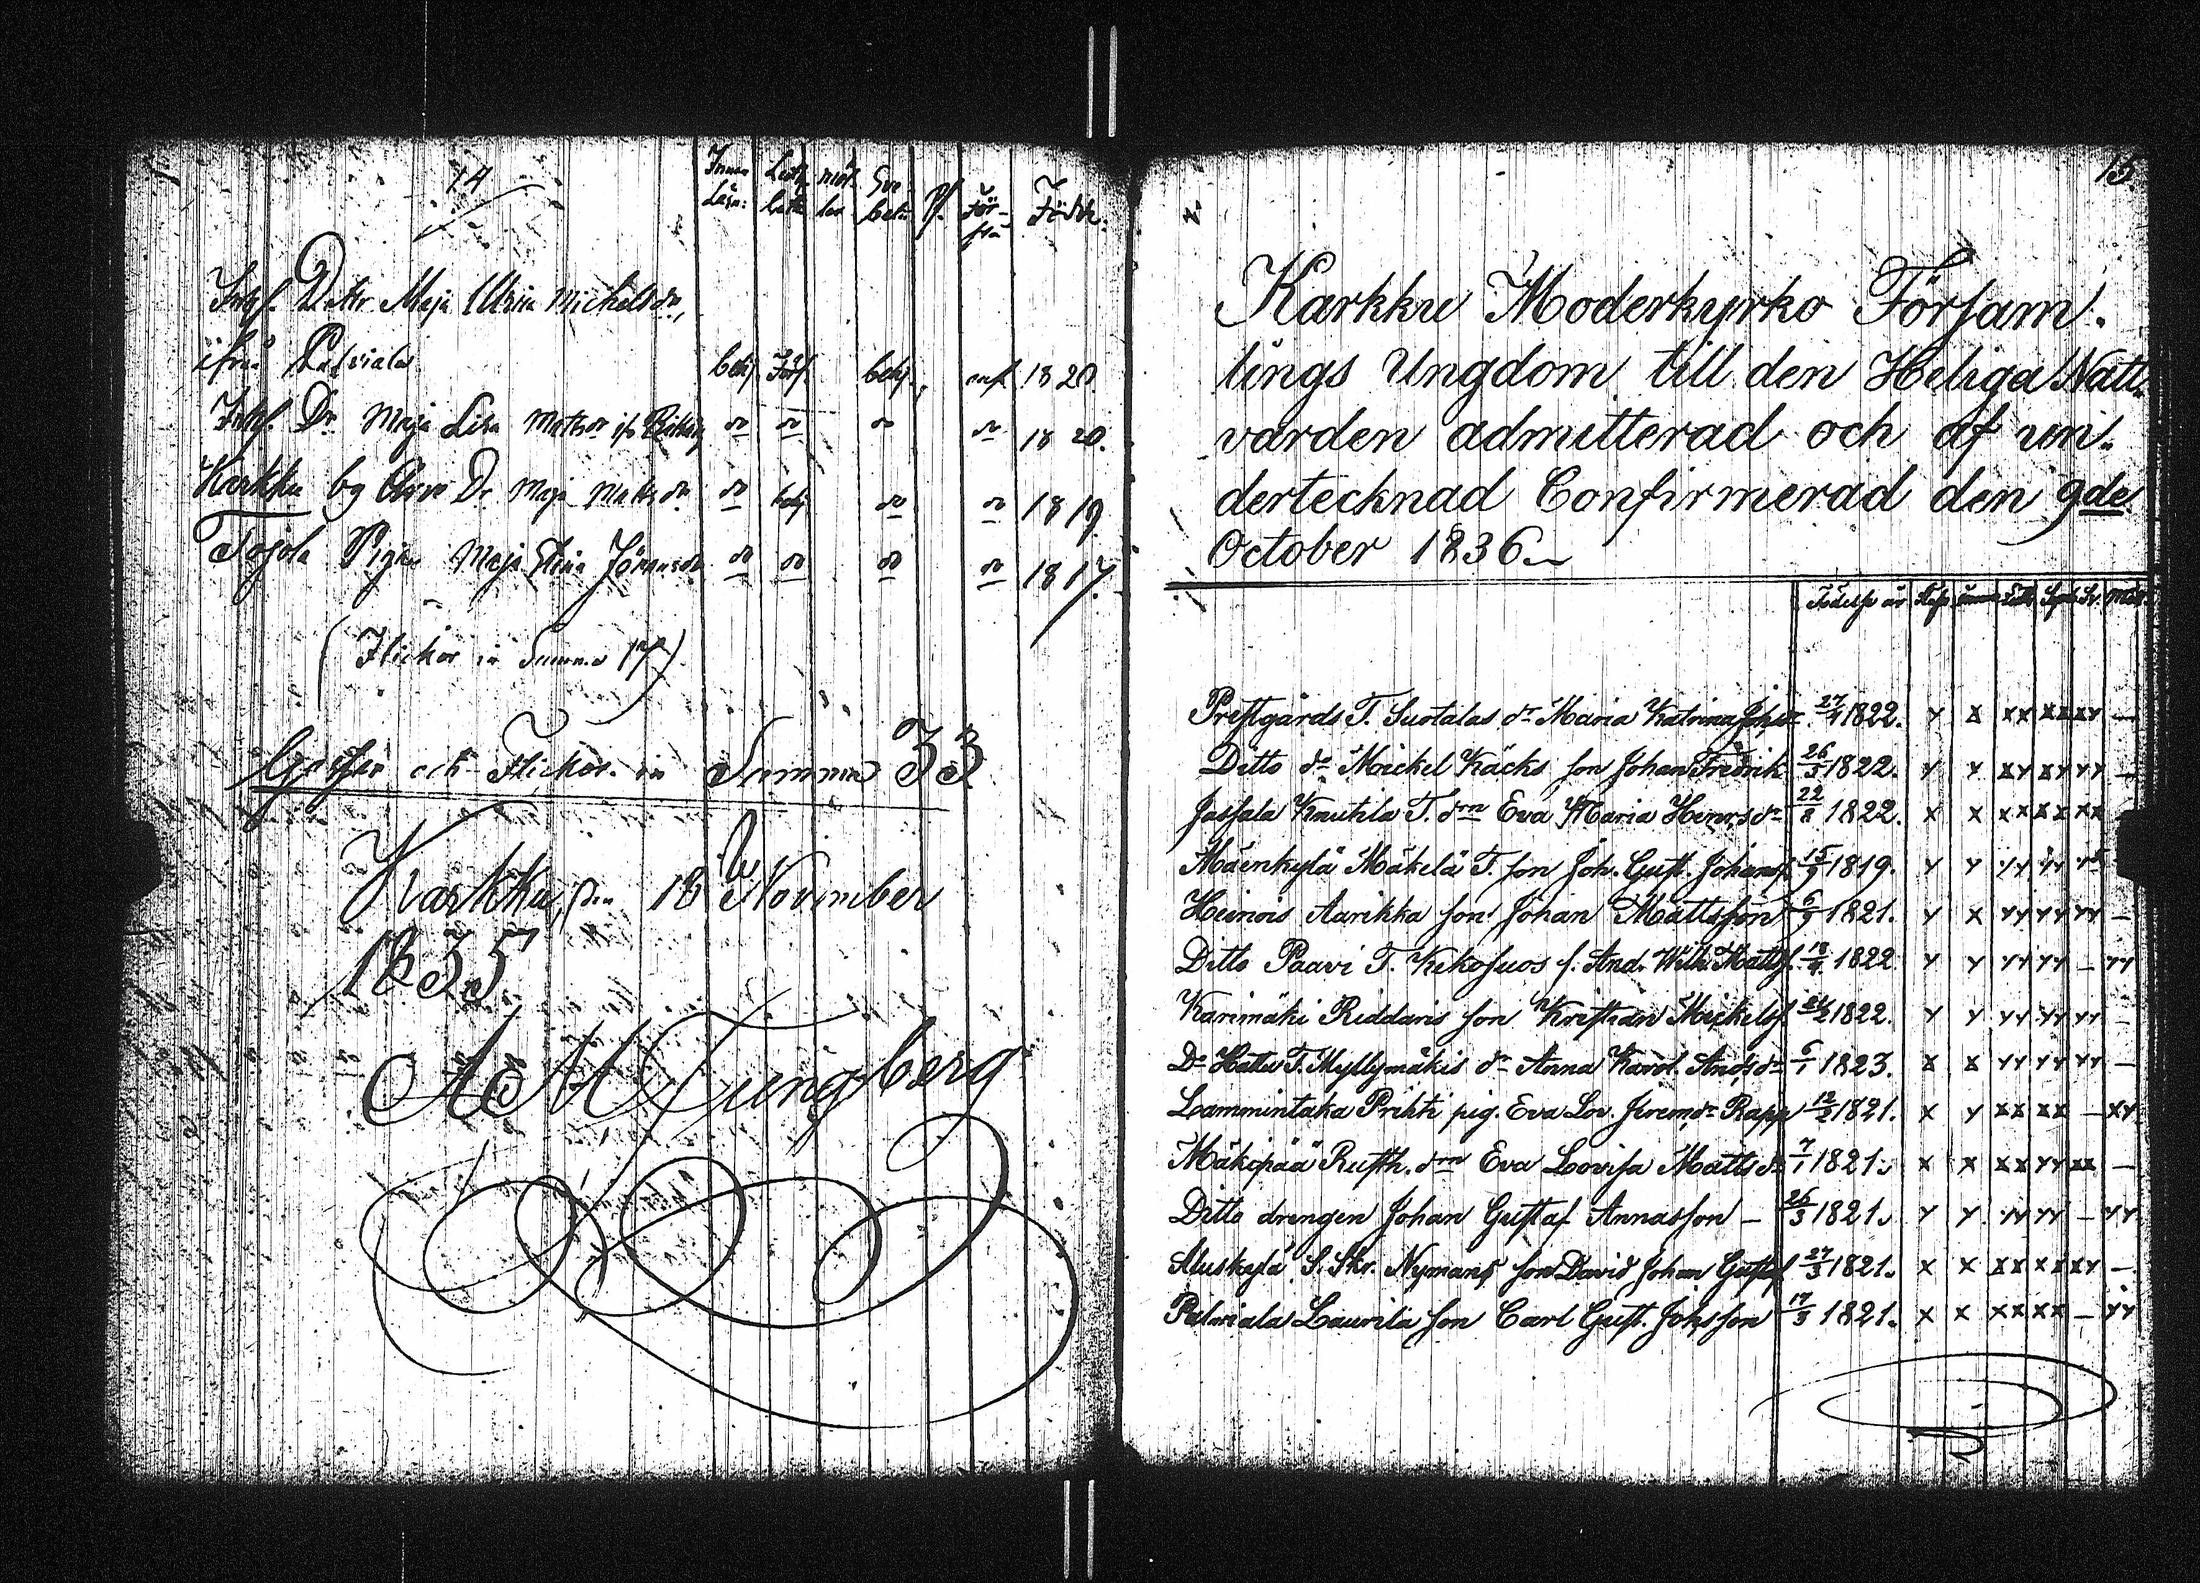 14
Innan Läsn:
Föd:
Inhs. Dottr Maja Ulrica Michelsdr,
ifrån Palviala behj. Förs. behj. 1820
Inhs. Dr Maja Lisa Mattsdr do do do do 1820.
Karkku by Dr Maja Mattsdr do behj do do 1819.
Tojola Pigan Maja Stina do do do do 1817.
(Flickor in Summa 17)
Gossar och Flickor in Summa 33
Karkku, den 18 November
1835
Ljungberg
15.
Karkku Moderkyrko Församl.
lings Ungdom till den Heliga Natt-
varden admitterad och af un-
dertecknad Confirmerad den 9de
October 1836.
Födelse år
Prestgårds T. Suotalas dr Maria Katrina Johsdr 27/4 1822. x x xx xx xx —
Ditto do Mickel Käcks son Johan Fredrik 26/3 1822. x x xx xx xx —
Jassala Knutila T. drn Eva Maria Henrsdr 22/8 1822. x x xx xx xx
Mäenkylä Mäkelä T. son Joh. Gust. Johanss. 15/9 1819. x x xx xx
Heinois Aarikka son Johan Mattsson 1821. x x xx xx xx —
Ditto Paavi T. Kekosuos s. And. Wilh. Matts. 1822 x x xx xx — xx
Karimäki Riddaris son Kristian Mickels. 1822. x x xx xx xx —
Do Hatu T. Myllymäkis dr Anna Karol. Andsdr 6/1 1823. x x xx xx xx —
Lammintaka Prihti pig. Eva Lov. Jeremdr Rapp 1821. x x xx xx — xx
Mäkipää Rusth. drn Eva Lovisa Mattsdr 7/1 1821. x x xx xx xx —
Ditto drengen Johan Gustaf Annasson — 26/3 1821. x x xx xx — xx
Aluskylä S. Skr. Nymans son David Johan Gustaf 27/3 1821. x x xx xx xx —
Palviala Laurila son Carl Gust. Johsson 17/3 1821. x x xx xx — xx